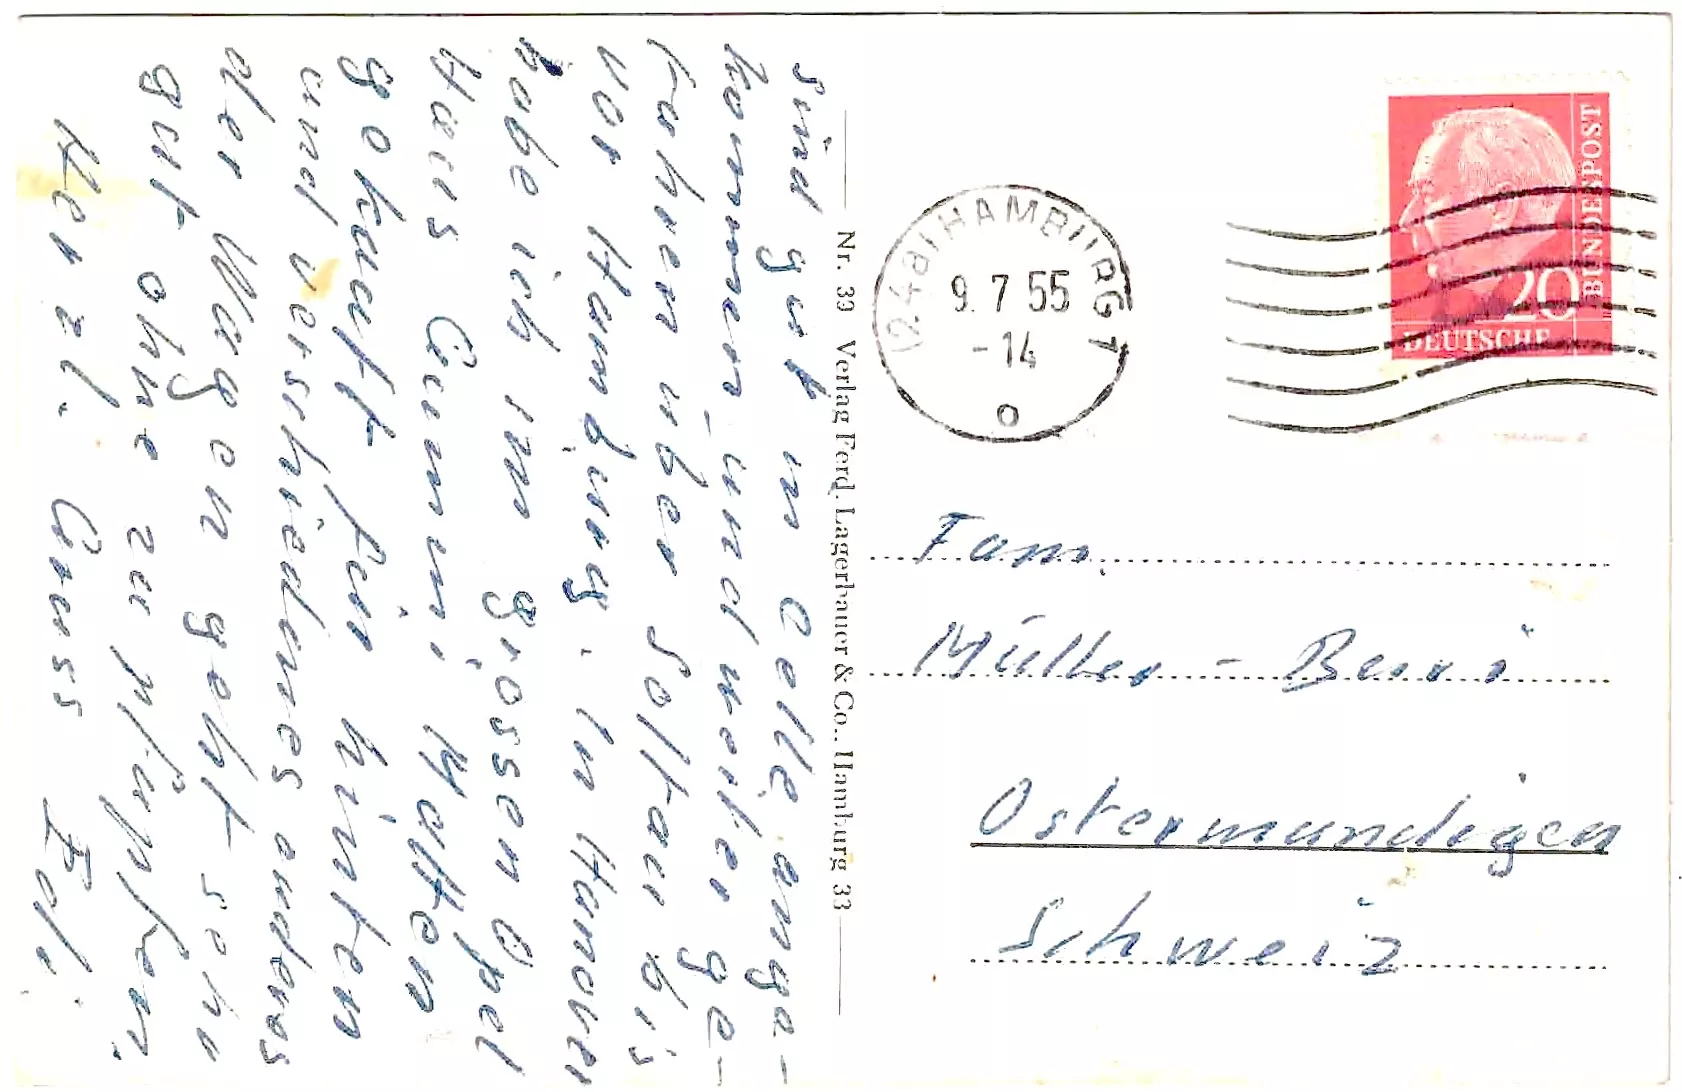 sind gut in Celle ange-
kommen und weiter ge-
fahren über Soltau bis
vor Hamburg. In Hanover
habe ich im grossen Opel
Haus Gummi Matten
gekauft für hinten
und verschiedenes anderes
der Wagen geht sehr
gut ohne zu pfüpfen.
Herzl. Gruss Edi
Nr. 39 Verlag Ferd. Lagerbauer & Co., Hamburg 33
(24a) HAMBURG 1
9.7.55
-14
o
20
DEUTSCHE
BUNDESPOST
Fam.
Müller -
Ostermundigen
Schweiz